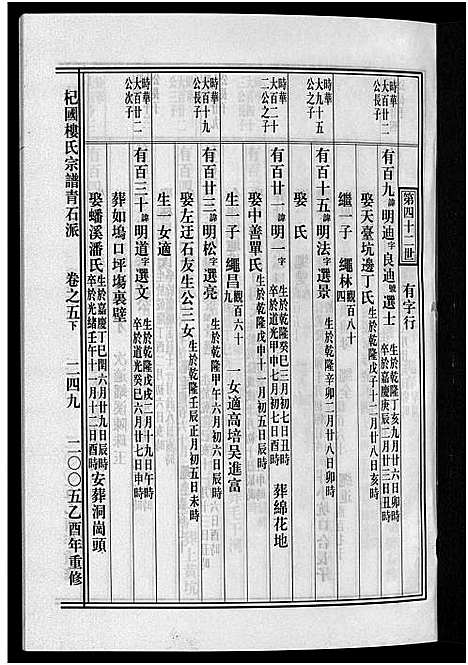 第四十二世　有字行
時華
大百廿二
公長子
有百九諱明迪字良迪號選士
生於乾隆丁亥九月廿六日卯時
卒於嘉慶庚辰二月廿三日丑時
娶天臺坑邊丁氏
生於乾隆戊子十二月廿八日辰時
繼一子　繩林觀百八十四
時華
大九十五
公之子
有百十五諱明法字選景
生於乾隆辛卯二月廿八日卯時
娶　氏
時華
大百二十
二公之子
有百廿一諱明一字
生於乾隆癸巳三月初七日丑時
卒於道光甲申七月初七日酉時
葬綿花地
娶中善單氏
生於乾隆戊申十一月初五日辰時
生一子　繩昌觀百六十　一女適高培吳進富
時華
大百十九
公長子
有百廿三諱明松字選亮
生於乾隆甲午六月初六日辰時
娶左迂石友生公三女
生於乾隆壬辰正月初五日未時
生一女適
時華
大百廿二
公次子
有百三十諱明道字選文
生於乾隆戊戌二月十九日午時
卒於道光癸巳六月廿七日申時
葬如塢口坪塲裏壁
娶蟠溪潘氏
生於嘉慶丁巳閏六月廿九日辰時
卒於光緒壬午十一月十二日酉時
安葬洞崗頭
杞國樓氏宗譜青石派　卷之五下　二四九　二〇〇五乙酉年重修